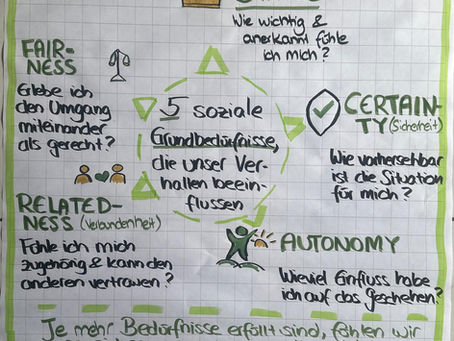 Wie wichtig &
anerkannt fühle
ich mich?
FAIR-
NESS
Erlebe ich
den Umgang
miteinander
als gerecht?
5 soziale
Grundbedürfnisse,
die unser Ver-
halten beein-
flussen
CERTAIN-
TY (Sicherheit)
Wie vorhersehbar
ist die Situation
für mich?
RELATED-
NESS (Verbundenheit)
Fühle ich mich
zugehörig & kann den
anderen vertrauen?
AUTONOMY
Wieviel Einfluss habe
ich auf das Geschehen?
Je mehr Bedürfnisse erfüllt sind, fühlen wir